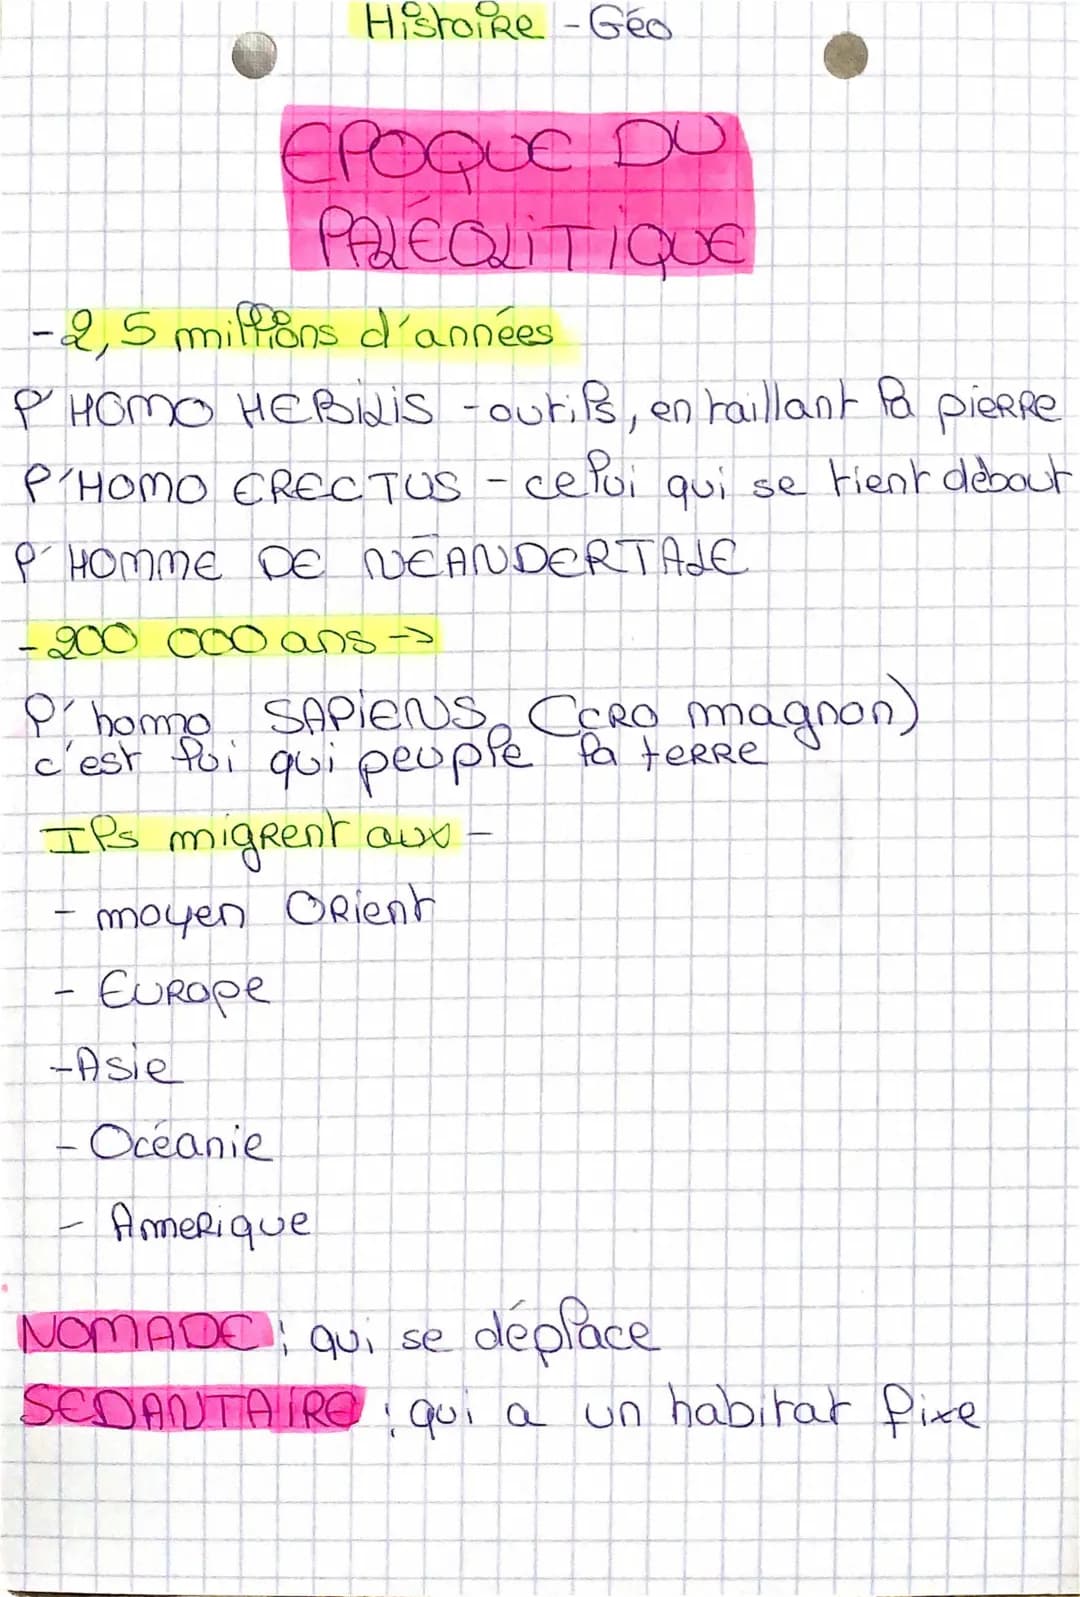 Histoire - Géo
EPOQUE DU
PALÉOLITIQUE
-2,5 millions d'années
l'HOMO HEBILIS - outils, en taillant la pierre
l'HOMO ERECTUS - celui qui se tient débout
l'HOMME DE NÉANDERTALE
-200 000 ans ->
l'homo SAPIENS (CRO magnon)
c'est lui qui peuple la terre
Ils migrent aux -
- moyen Orient
- Europe
-Asie
- Océanie
- Amerique
NOMADE : qui se déplace
SEDANTAIRE : qui a un habitat fixe